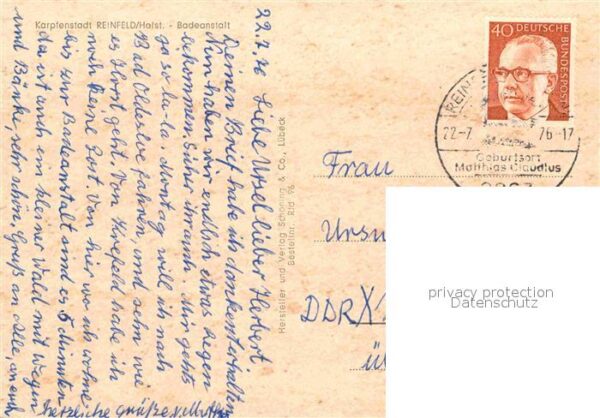 Karpfenstadt REINFELD/Holst. - Badeanstalt
22.7.76
Liebe Ursel lieber Herbert
Deinen Brief habe ich dankend erhalten
Nun haben wir endlich etwas Regen
bekommen. Sicher ihr auch. Mir gehts
so la-la. Montag will ich nach
Bad Oldesloe fahren, und sehn wie
es Horst geht. Von Reinfeld habe ich
keine Lust. Von hier wo ich wohne
bis zur Badeanstalt sind es 5 Minuten
da ist auch ein kleiner Wald mit Wegen
und Bänke, sehr schön. Gruß an Alle, an euch
herzliche Grüße v. Mutter
Hersteller und Verlag Schöning & Co., Lübeck
Bestellnr. Rfd 96
40 DEUTSCHE BUNDESPOST
REINF
22-7 76-17
Geburtsort
Matthias Claudius
Frau
Ursu
DDR X
privacy protection
Datenschutz